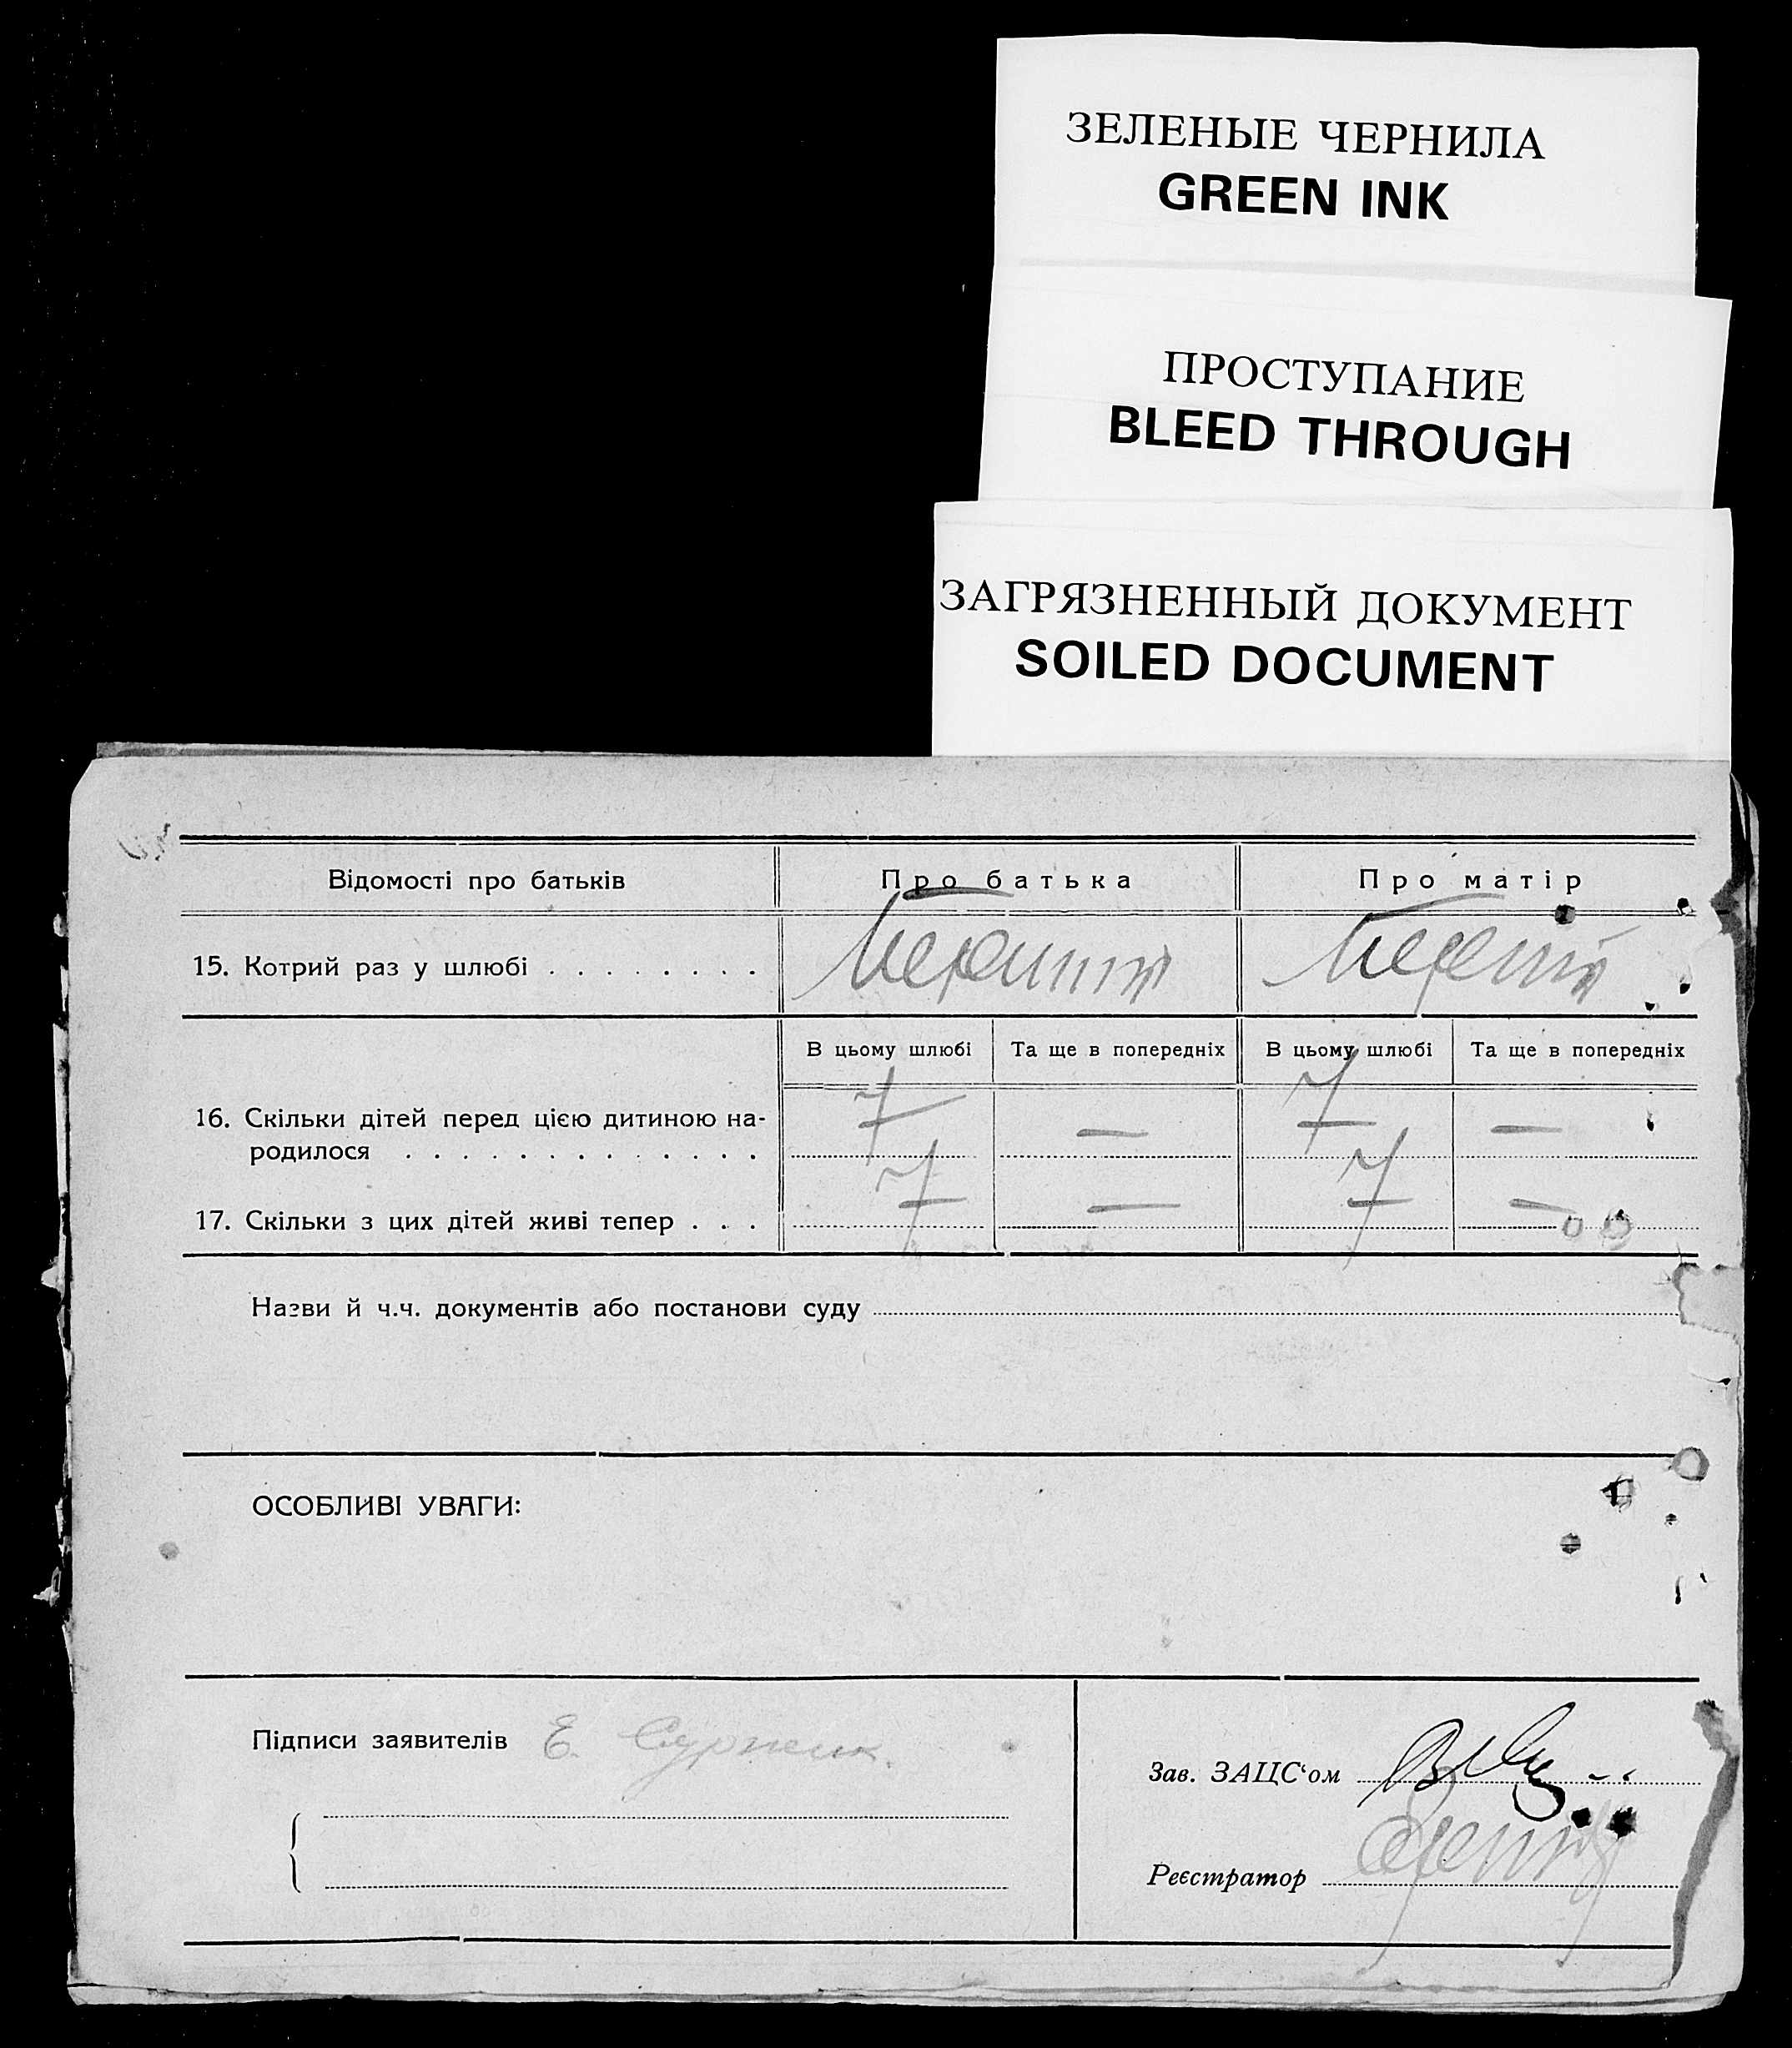 ЗЕЛЕНЫЕ ЧЕРНИЛА
GREEN INK
ПРОСТУПАНИЕ
BLEED THROUGH
ЗАГРЯЗНЕННЫЙ ДОКУМЕНТ
SOILED DOCUMENT
Відомості про батьків Про батька Про матір
15. Котрий раз у шлюбі . . . . . . . .
В цьому шлюбі Та ще в попередніх В цьому шлюбі Та ще в попередніх
16. Скільки дітей перед цією дитиною на- 7 — 7 —
родилося . . . . . . . . . . . . .
17. Скільки з цих дітей живі тепер . . . 7 — 7 —
Назви й ч.ч. документів або постанови суду
ОСОБЛИВІ УВАГИ:
Підписи заявителів Е.
Зав. ЗАЦС‘ом
Реєстратор